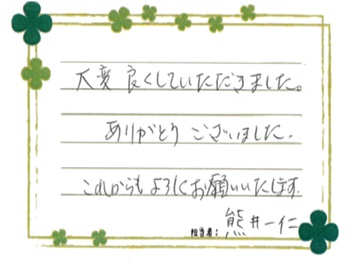 大変良くしていただきました。
ありがとうございました.
これからもよろしくお願いいたします.
担当者: 熊井一仁